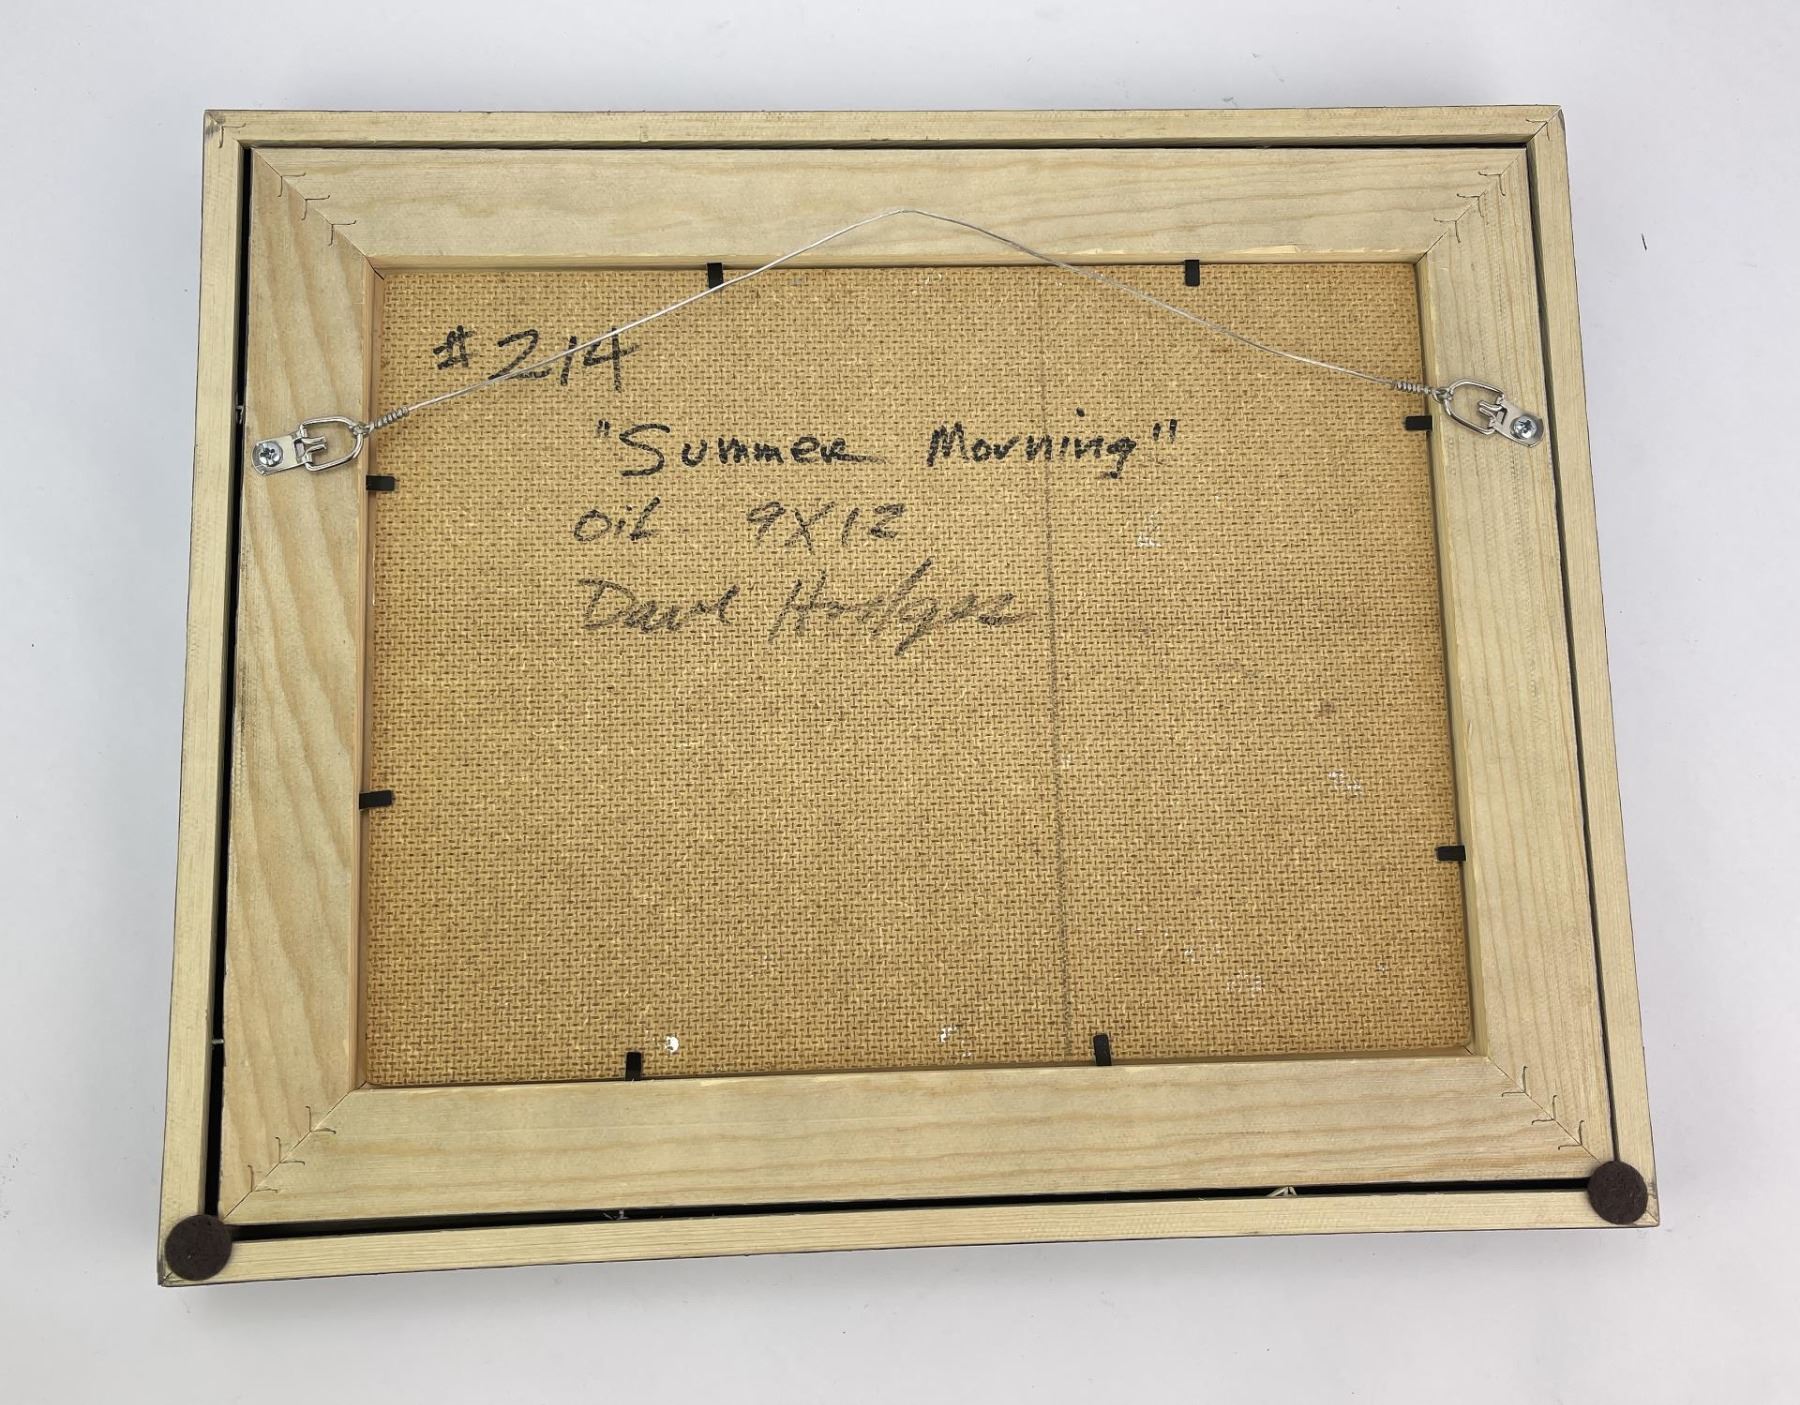 #214
"Summer Morning"
Oil 9X12
Dave Hodges